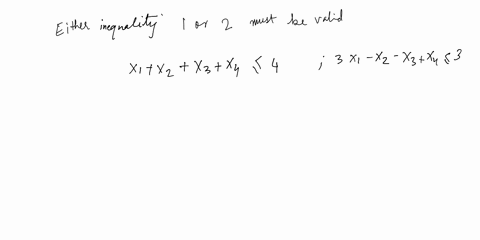 Either inequality 1 or 2 must be valid
x1 + x2 + x3 + x4 ≤ 4 ; 3 x1 - x2 - x3 + x4 ≤ 3